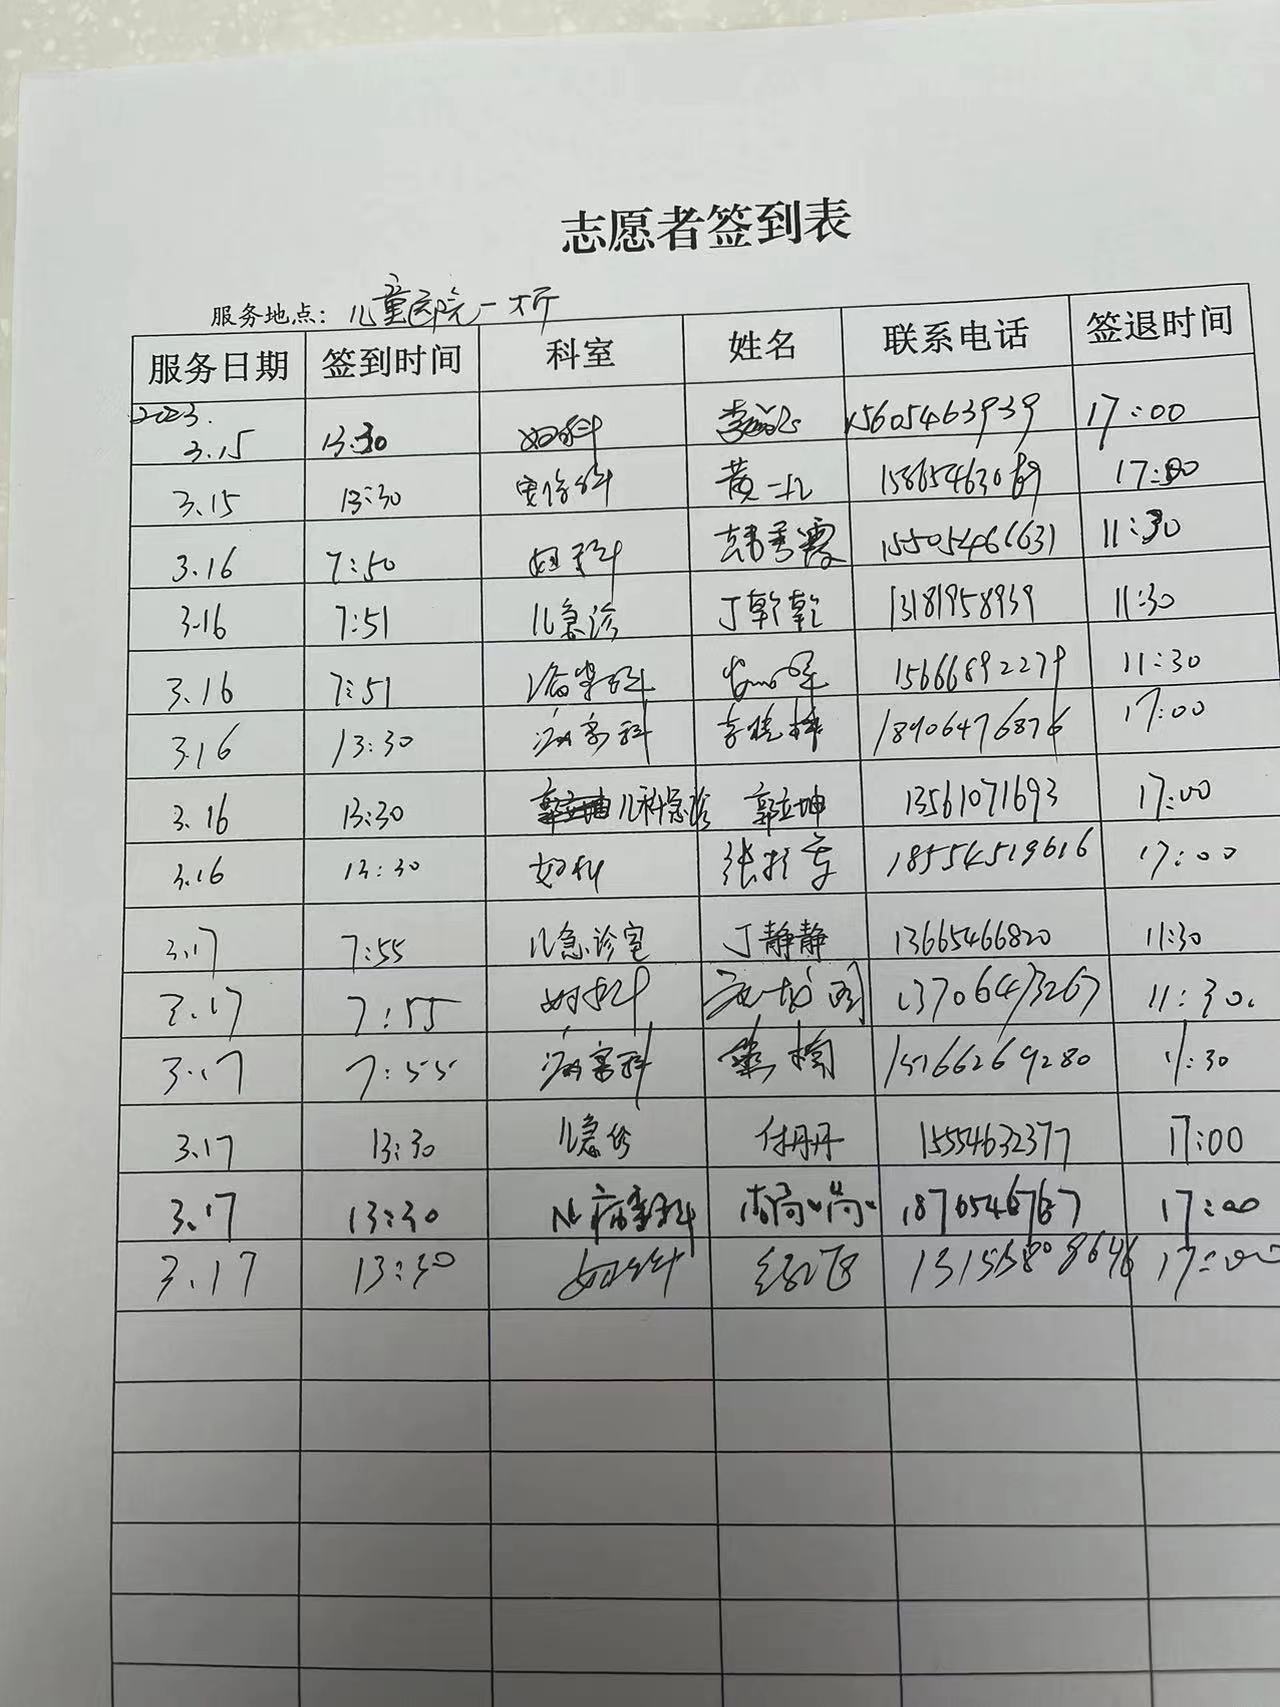 志愿者签到表
服务地点：儿童医院一大厅
服务日期 签到时间 科室 姓名 联系电话 签退时间
2023.
3.15 13:30 妇科 15605463939 17:00
3.15 13:30 黄 17:00
3.16 7:50 妇科 韩秀霞 15505466631 11:30
3.16 7:51 儿急诊 丁乾乾 13181958939 11:30
3.16 7:51 15666892279 11:30
3.16 13:30 病案科 李晓梅 18906476876 17:00
3.16 13:30 儿科急诊 郭立坤 13561071693 17:00
3.16 13:30 妇科 张 18554519616 17:00
3.17 7:55 儿急诊室 丁静静 13665466820 11:30
3.17 7:55 妇科 13706473267 11:30.
3.17 7:55 病案科 15166269280 11:30
3.17 13:30 儿急诊 付丹丹 15554632377 17:00
3.17 13:30 病案科 17:00
3.17 13:30 妇科 17:00